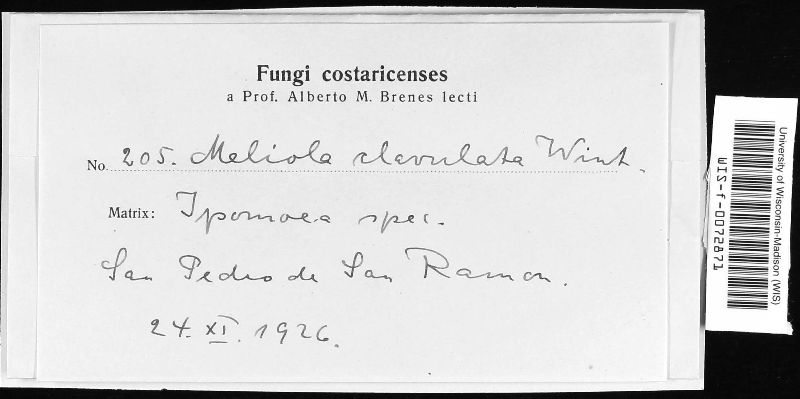 Fungi costaricenses
a Prof. Alberto M. Brenes lecti
No. 205. Meliola clavulata Wint.
Matrix: Ipomoea spec.
San Pedro de San Ramon.
24. XI. 1926.
University of Wisconsin-Madison (WIS)
WIS-f-0072871